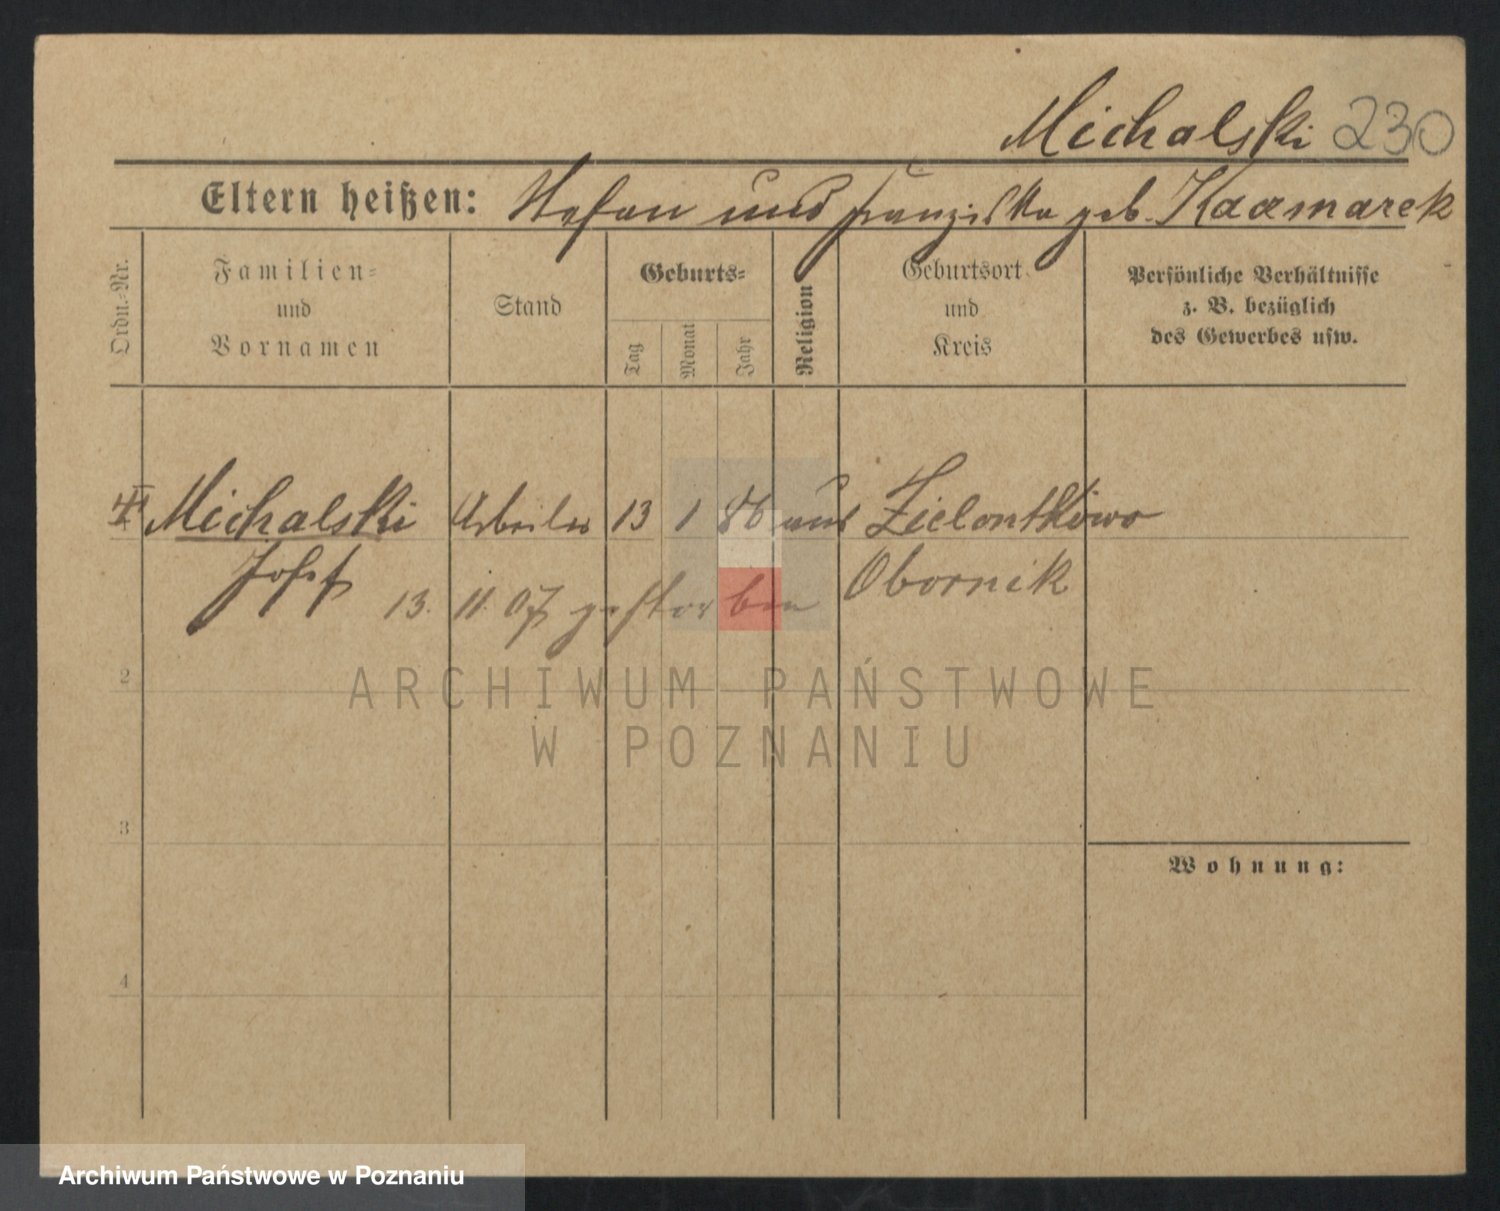 Michalski 230
Eltern heißen: Stefan und Franziska geb. Kaamarek
Ordn.-Nr.
Familien-
und
Vornamen
Stand
Geburts-
Tag
Monat
Jahr
Religion
Geburtsort
und
Kreis
Persönliche Verhältnisse
z. B. bezüglich
des Gewerbes usw.
Michalski Arbeiter 13 1 86 aus Zielontkowo
Josef
Obornik
13. 11. 07 gestorben
2
ARCHIWUM PAŃSTWOWE
W POZNANIU
3
Wohnung:
4
Archiwum Państwowe w Poznaniu